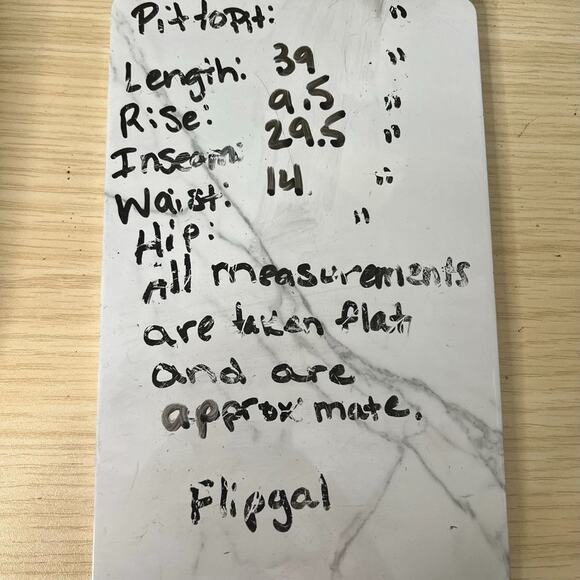 Pit to Pit: "
Length: 39 "
Rise: 9.5 "
Inseam: 29.5 "
Waist: 14 "
Hip: "
All measurements
are taken flat
and are
approximate.
Flipgal